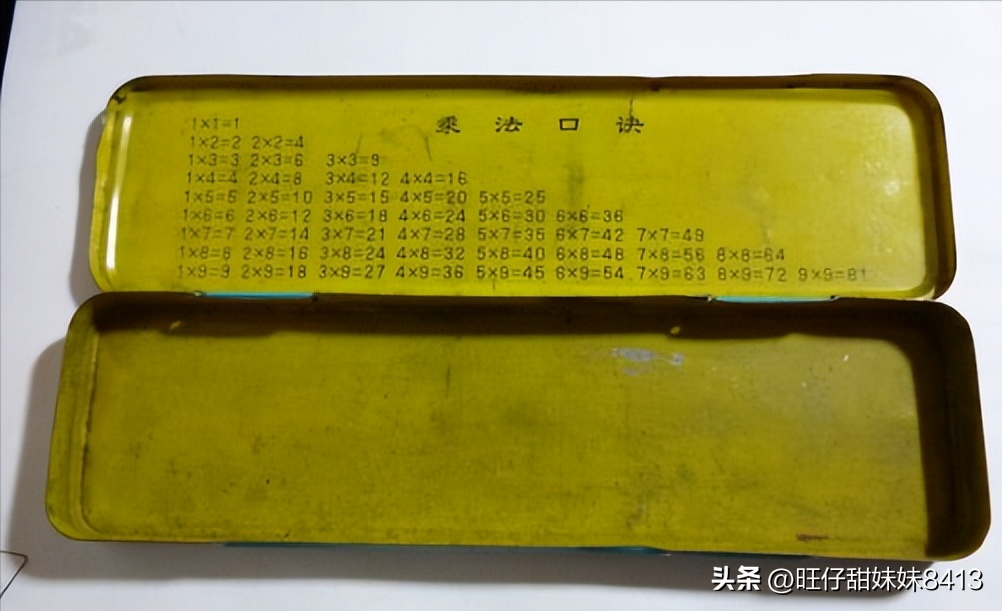 乘法口诀
1×1=1
1×2=2 2×2=4
1×3=3 2×3=6 3×3=9
1×4=4 2×4=8 3×4=12 4×4=16
1×5=5 2×5=10 3×5=15 4×5=20 5×5=25
1×6=6 2×6=12 3×6=18 4×6=24 5×6=30 6×6=36
1×7=7 2×7=14 3×7=21 4×7=28 5×7=35 6×7=42 7×7=49
1×8=8 2×8=16 3×8=24 4×8=32 5×8=40 6×8=48 7×8=56 8×8=64
1×9=9 2×9=18 3×9=27 4×9=36 5×9=45 6×9=54 7×9=63 8×9=72 9×9=81
头条 @旺仔甜妹妹8413